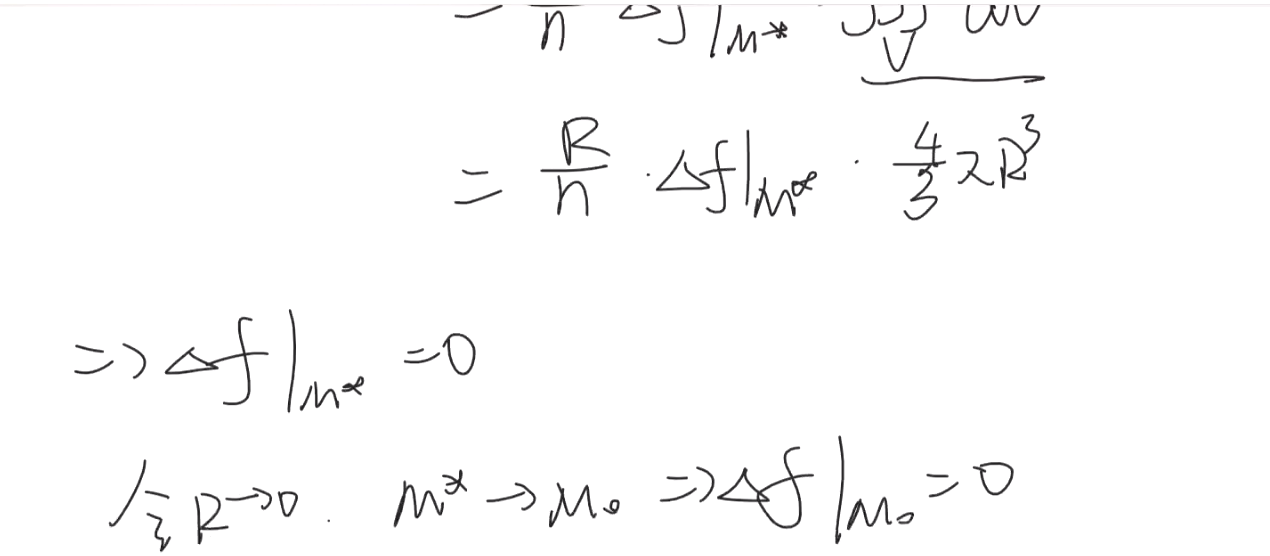 = —/n Δf|_{M*} ∭_V dV
= R/n · Δf|_{M*} · 4/3 πR³
=> Δf|_{M*} = 0
令R→0. M*→M₀ => Δf|_{M₀} = 0